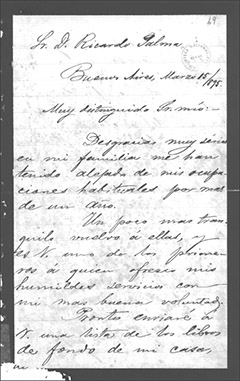 69
Sr. D. Ricardo Palma
Buenos Aires, Marzo 15/895.
Muy distinguido Sr. mío:-
Desgracias muy sérias
en mi familia me han
tenido alejado de mis ocupa
ciones habituales por mas
de un año.
Un poco mas tran-
quilo vuelvo á ellas, y
es V. uno de los primer-
os á quien ofresco mis
humildes servicios con
mi mas buena voluntad.
Pronto enviaré á
V. una lista de los libros
de fondo de mi casa,